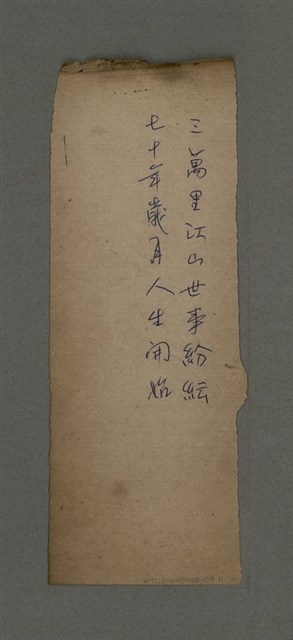 三萬里江山世事紛紜
七十年歲月人生開始